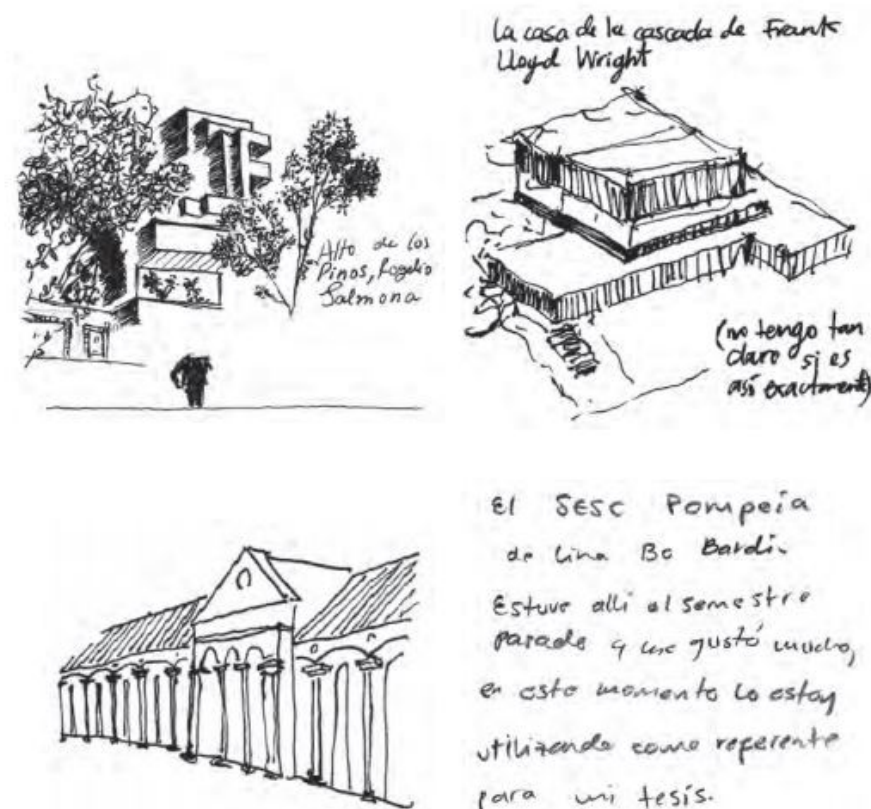 Alto de los
Pinos, Rogelio
Salmona
La casa de la cascada de Frank
Lloyd Wright
(no tengo tan
claro si es
así exactamente)
El SESC Pompeia
de Lina Bo Bardi.
Estuve allí el semestre
pasado y me gustó mucho,
en este momento lo estoy
utilizando como referente
para mi tesis.